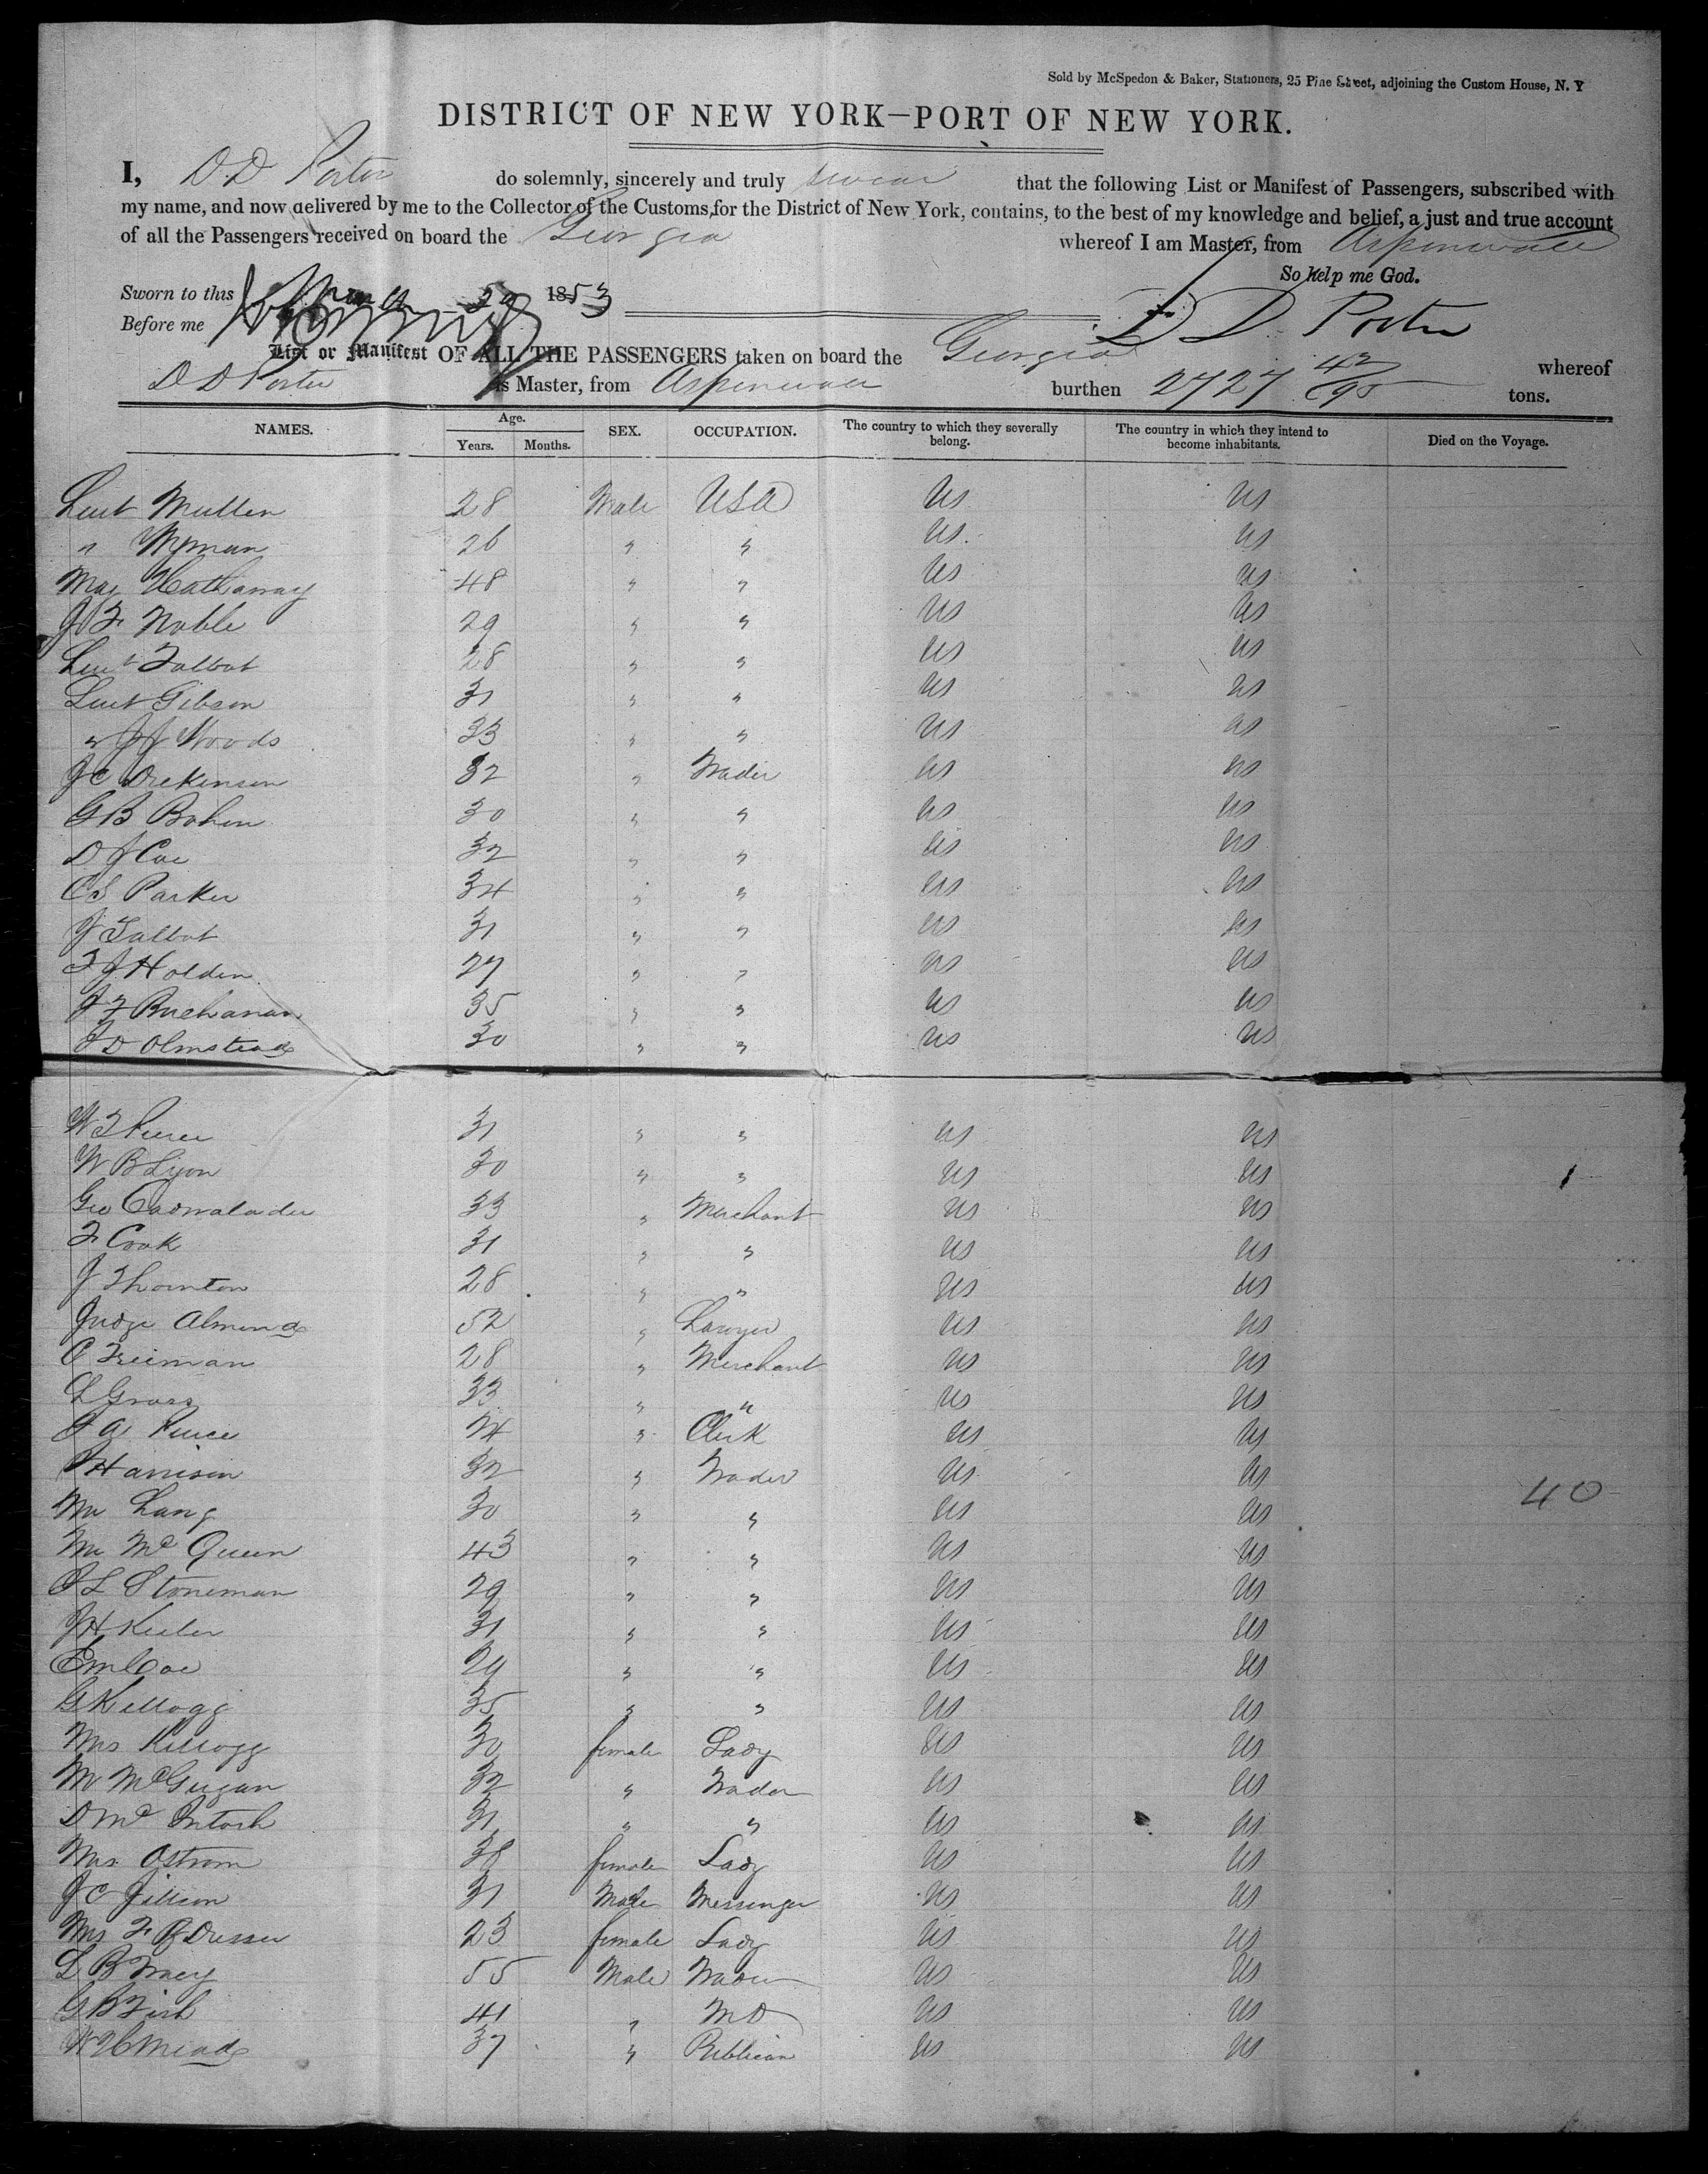 Sold by McSpedon & Baker, Stationers, 25 Pine Street, adjoining the Custom House, N. Y
DISTRICT OF NEW YORK—PORT OF NEW YORK.
I, D. D Porter do solemnly, sincerely and truly swear that the following List or Manifest of Passengers, subscribed with
my name, and now delivered by me to the Collector of the Customs, for the District of New York, contains, to the best of my knowledge and belief, a just and true account
of all the Passengers received on board the Georgia whereof I am Master, from Aspinwall
So help me God.
Sworn to this March 29 1853
Before me D D Porter
List or Manifest OF ALL THE PASSENGERS taken on board the Georgia whereof
D D Porter is Master, from Aspinwall burthen 2727 42/95 tons.
NAMES. Age. Years. Months. SEX. OCCUPATION. The country to which they severally belong. The country in which they intend to become inhabitants. Died on the Voyage.
Lieut Mullen 28 Male USA US US
" Wyman 26 " " US US
Maj Hathaway 48 " " US US
J F Noble 29 " " US US
Lieut Talbot 28 " " US US
Lieut Gibson 31 " " US US
" J J Woods 33 " " US US
J C Dickinson 32 " Trader US US
G B Bohen 30 " " US US
D J Coe 32 " " US US
C S Parker 34 " " US US
J Talbot 31 " " US US
T J Holden 27 " " US US
J F Buchanan 35 " " US US
J D Olmstead 30 " " US US
W T Pierce 31 " " US US
W B Lyon 30 " " US US
Geo Cadwalader 33 " Merchant US US
F Cook 31 " " US US
J Thornton 28 " " US US
Judge Almond 52 " Lawyer US US
C Freeman 28 " Merchant US US
L Gross 33 " " US US
J A Peirce 24 " Clerk US US
P Harrison 32 " Trader US US
Mr Lang 30 " " US US 40
Mr McQueen 43 " " US US
J L Stoneman 29 " " US US
J H Keeler 31 " " US US
E M Coe 29 " " US US
G Kellogg 35 " " US US
Mrs Kellogg 30 female Lady US US
M McGugan 32 " Trader US US
D McIntosh 31 " " US US
Mrs Ostrom 38 female Lady US US
J C Jillson 31 Male Messenger US US
Mrs F Dresser 23 female Lady US US
L B Tracy 55 Male Trader US US
G B Fish 41 " MD US US
W H Mead 37 " Publican US US